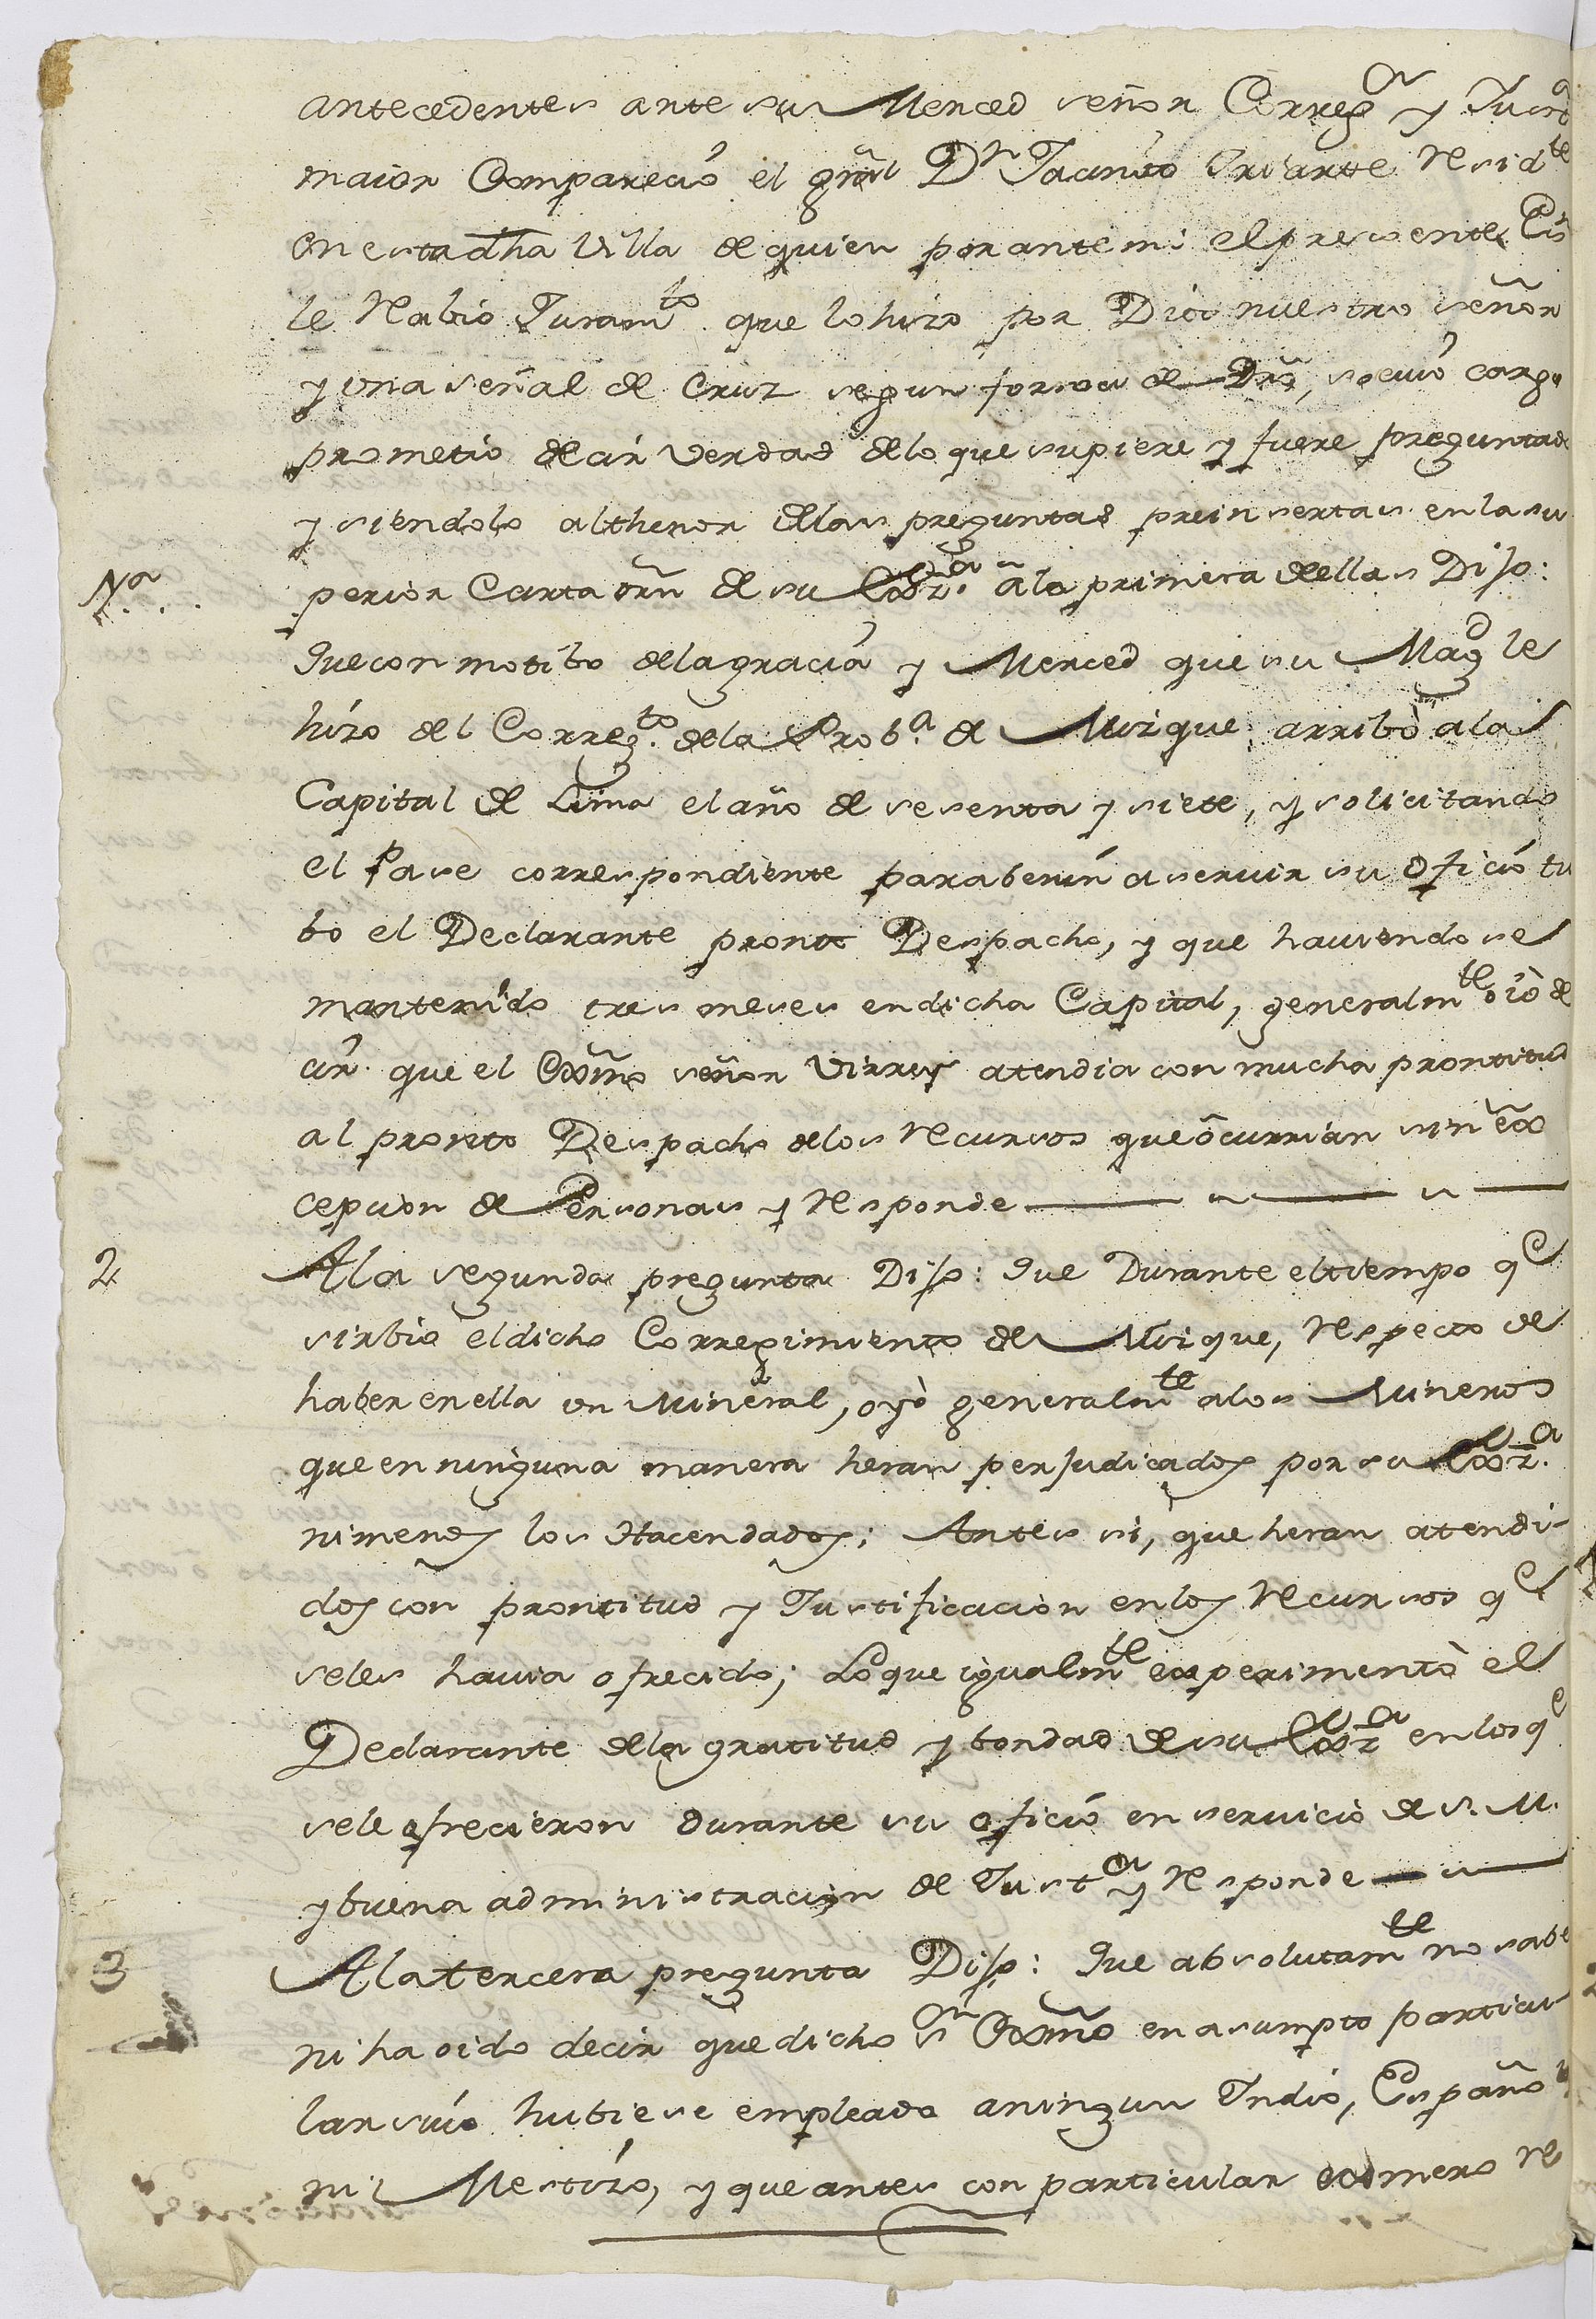 antecedentes ante su Merced señor Correg.or y Just.a
maior Comparecio el gral Dn Jacinto Iriarte Resid.te
en esta dha Villa de quien por ante mi el presente Es
le Resibio Juram.to que lo hizo por Dios nuestro señor
y una señal de Cruz segun forma de Dro, so cuio cargo
prometio decir verdad de lo que supiere y fuere preguntado
y siendolo al thenor de las preguntas preinsertas en la su
1.a perior Carta orn de su Exz.a a la primera de ellas Dijo:
Que con motibo de la gracia y Merced que su Mag.d le
hizo del Correg.to de la Prob.a de Mizque, arribò a la
Capital de Lima el año de sesenta y siete, y solicitando
el Pase correspondiente para benir a servir su oficio tu
bo el Declarante pronto Despacho, y que haviendose
mantenido tres meses en dicha Capital, generalm.te oiò de
cir que el Exmo señor Virrey atendia con mucha prontitud
al pronto Despacho de los Recursos que ocurrian sin ex
cepcion de Personas y Responde
2 A la segunda pregunta Dijo: Que Durante el tiempo q.e
sirbio el dicho Corregimiento de Misque, Respecto de
haber en ella un Mineral, oyò generalm.te a los Mineros
que en ninguna manera heran perjudicados por su Exz.a
ni menos los Hacendados; Antes si, que heran atendi-
dos con prontitud y Justificacion en los Recursos q.e
se les havia ofrecido; Lo que igualm.te experimentò el
Declarante de la gratitud y bondad de su Exz.a en los q.e
se le ofrecieron durante su oficio en servicio de S. M.
y buena administracion de Just.a y Responde
3 A la tercera pregunta Dijo: Que absolutam.te no sabe
ni ha oido decir que dicho S.or Exmo en asumpto particu
lar suio hubiese empleado a ningun Indio, Españo.l
ni Mestizo, y que antes con particular exmero Re